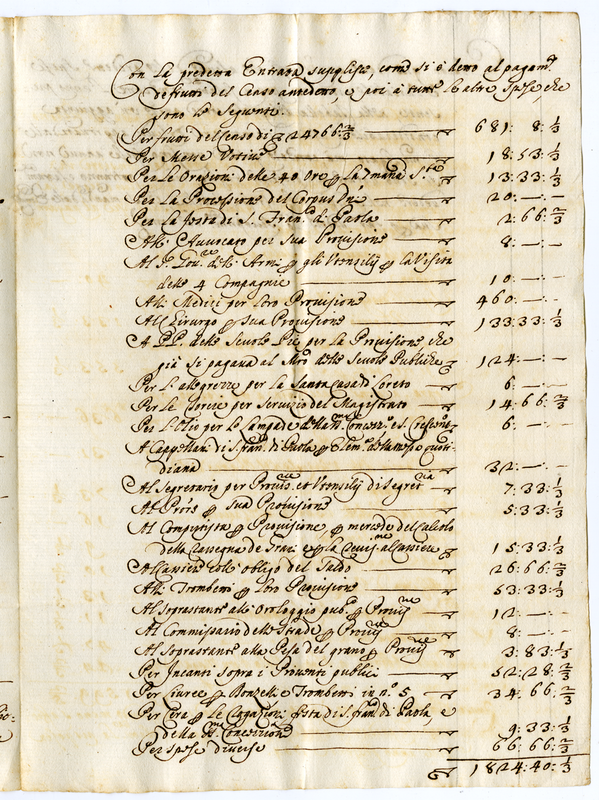 Con la predetta Entrata supplisce, come si è detto al pagam.to
de frutti del Censo antedetto, e poi à tutte le altre spese, che
sono le seguenti.
Per frutti del Censo di 24766:2/3 681: 8:1/3
Per Messe Votive 18:53:1/3
Per le Orazioni delle 40 Ore la 7mana S.ta 13:33:1/3
Per la Processione del Corpus Dni 20:—:—
Per la festa di S. Fran.co di Paola 2:66:2/3
All' Avvocato per sua Provisione 8:—:—
Al Gov.re dell' Armi gli Utensilij la Visita
delle 4 Compagnie 10:—:—
Alli Medici per loro Provisione 460:—:—
Al Cirurgo sua Provisione 133:33:1/3
A PP. delle Scuole Pie per la Provisione che
già si pagava al Mro delle Scuole Publiche 124:—:—
Per l' allegrezze per la Santa Casa di Loreto 6:—:—
Per le Torcie per servizio del Magistrato 14:66:2/3
Per l' Olio per le lampade Concez.ne e S. 6:—:—
A Cappellani di S. Fran.co di Paola quoti-
diana 32:—:—
Al Segretario per Provis.ne et Utensilij di Segret.ria 7:33:1/3
Al sua Provisione 5:33:1/3
Al Computista Provisione mercede del Calcolo
della Rassegna de al Cancell.re 15:33:1/3
Al coll' obligo del Saldo 26:66:2/3
Alli Trombetti loro Provisione 53:33:1/3
Al Soprastante all' Orologgio pub.co Provis.ne 12:—:—
Al Commissario delle Strade Provis.ne 8:—:—
Al Soprastante alla Pesa del grano Provis.ne 3:83:1/3
Per Incanti sopra i Proventi publici 52:28:2/3
Per Livree Donzelli e Trombetti in n.o 5 34:66:2/3
Per Cera festa di S. Fran.co di Paola, e
della Concezione 9:33:1/3
Per spese diverse 66:66:2/3
1824:40:1/3